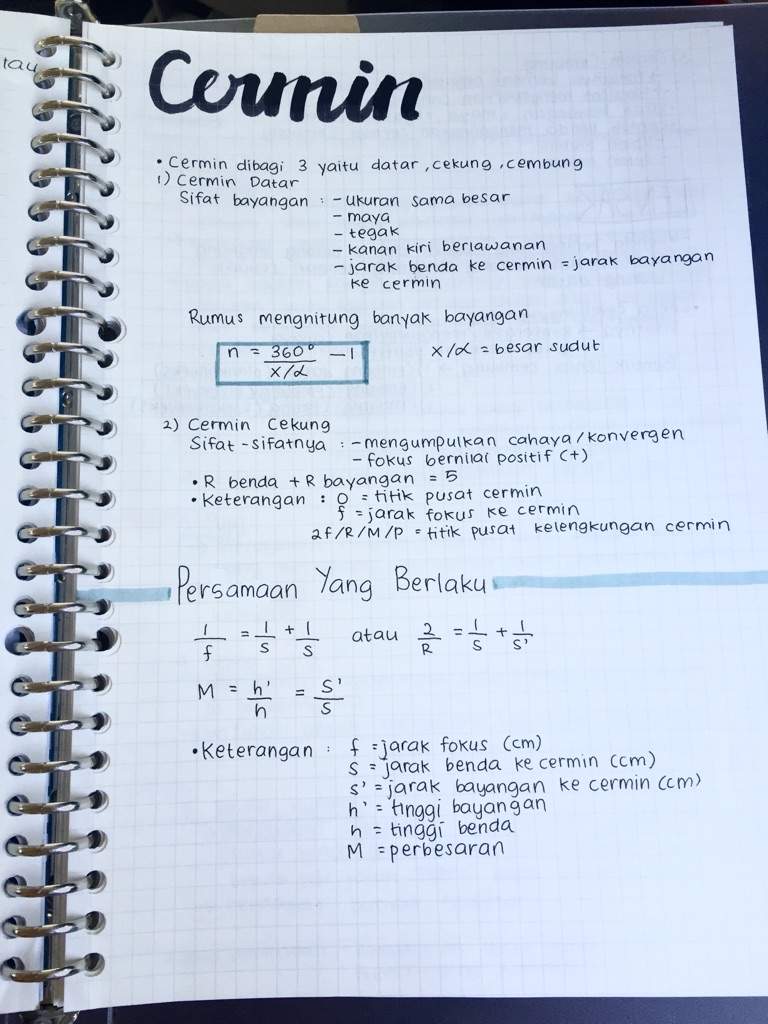 tau
Cermin
• Cermin dibagi 3 yaitu datar, cekung, cembung
1) Cermin Datar
Sifat bayangan : - ukuran sama besar
- maya
- tegak
- kanan kiri berlawanan
- jarak benda ke cermin = jarak bayangan
ke cermin
Rumus menghitung banyak bayangan
n = 360°/x/α - 1 x/α = besar sudut
2) Cermin Cekung
Sifat-sifatnya : - mengumpulkan cahaya/konvergen
- fokus bernilai positif (+)
• R benda + R bayangan = 5
• Keterangan : O = titik pusat cermin
f = jarak fokus ke cermin
2f/R/M/P = titik pusat kelengkungan cermin
Persamaan Yang Berlaku
1/f = 1/s + 1/s atau 2/R = 1/s + 1/s'
M = h'/h = s'/s
• Keterangan : f = jarak fokus (cm)
s = jarak benda ke cermin (cm)
s' = jarak bayangan ke cermin (cm)
h' = tinggi bayangan
h = tinggi benda
M = perbesaran